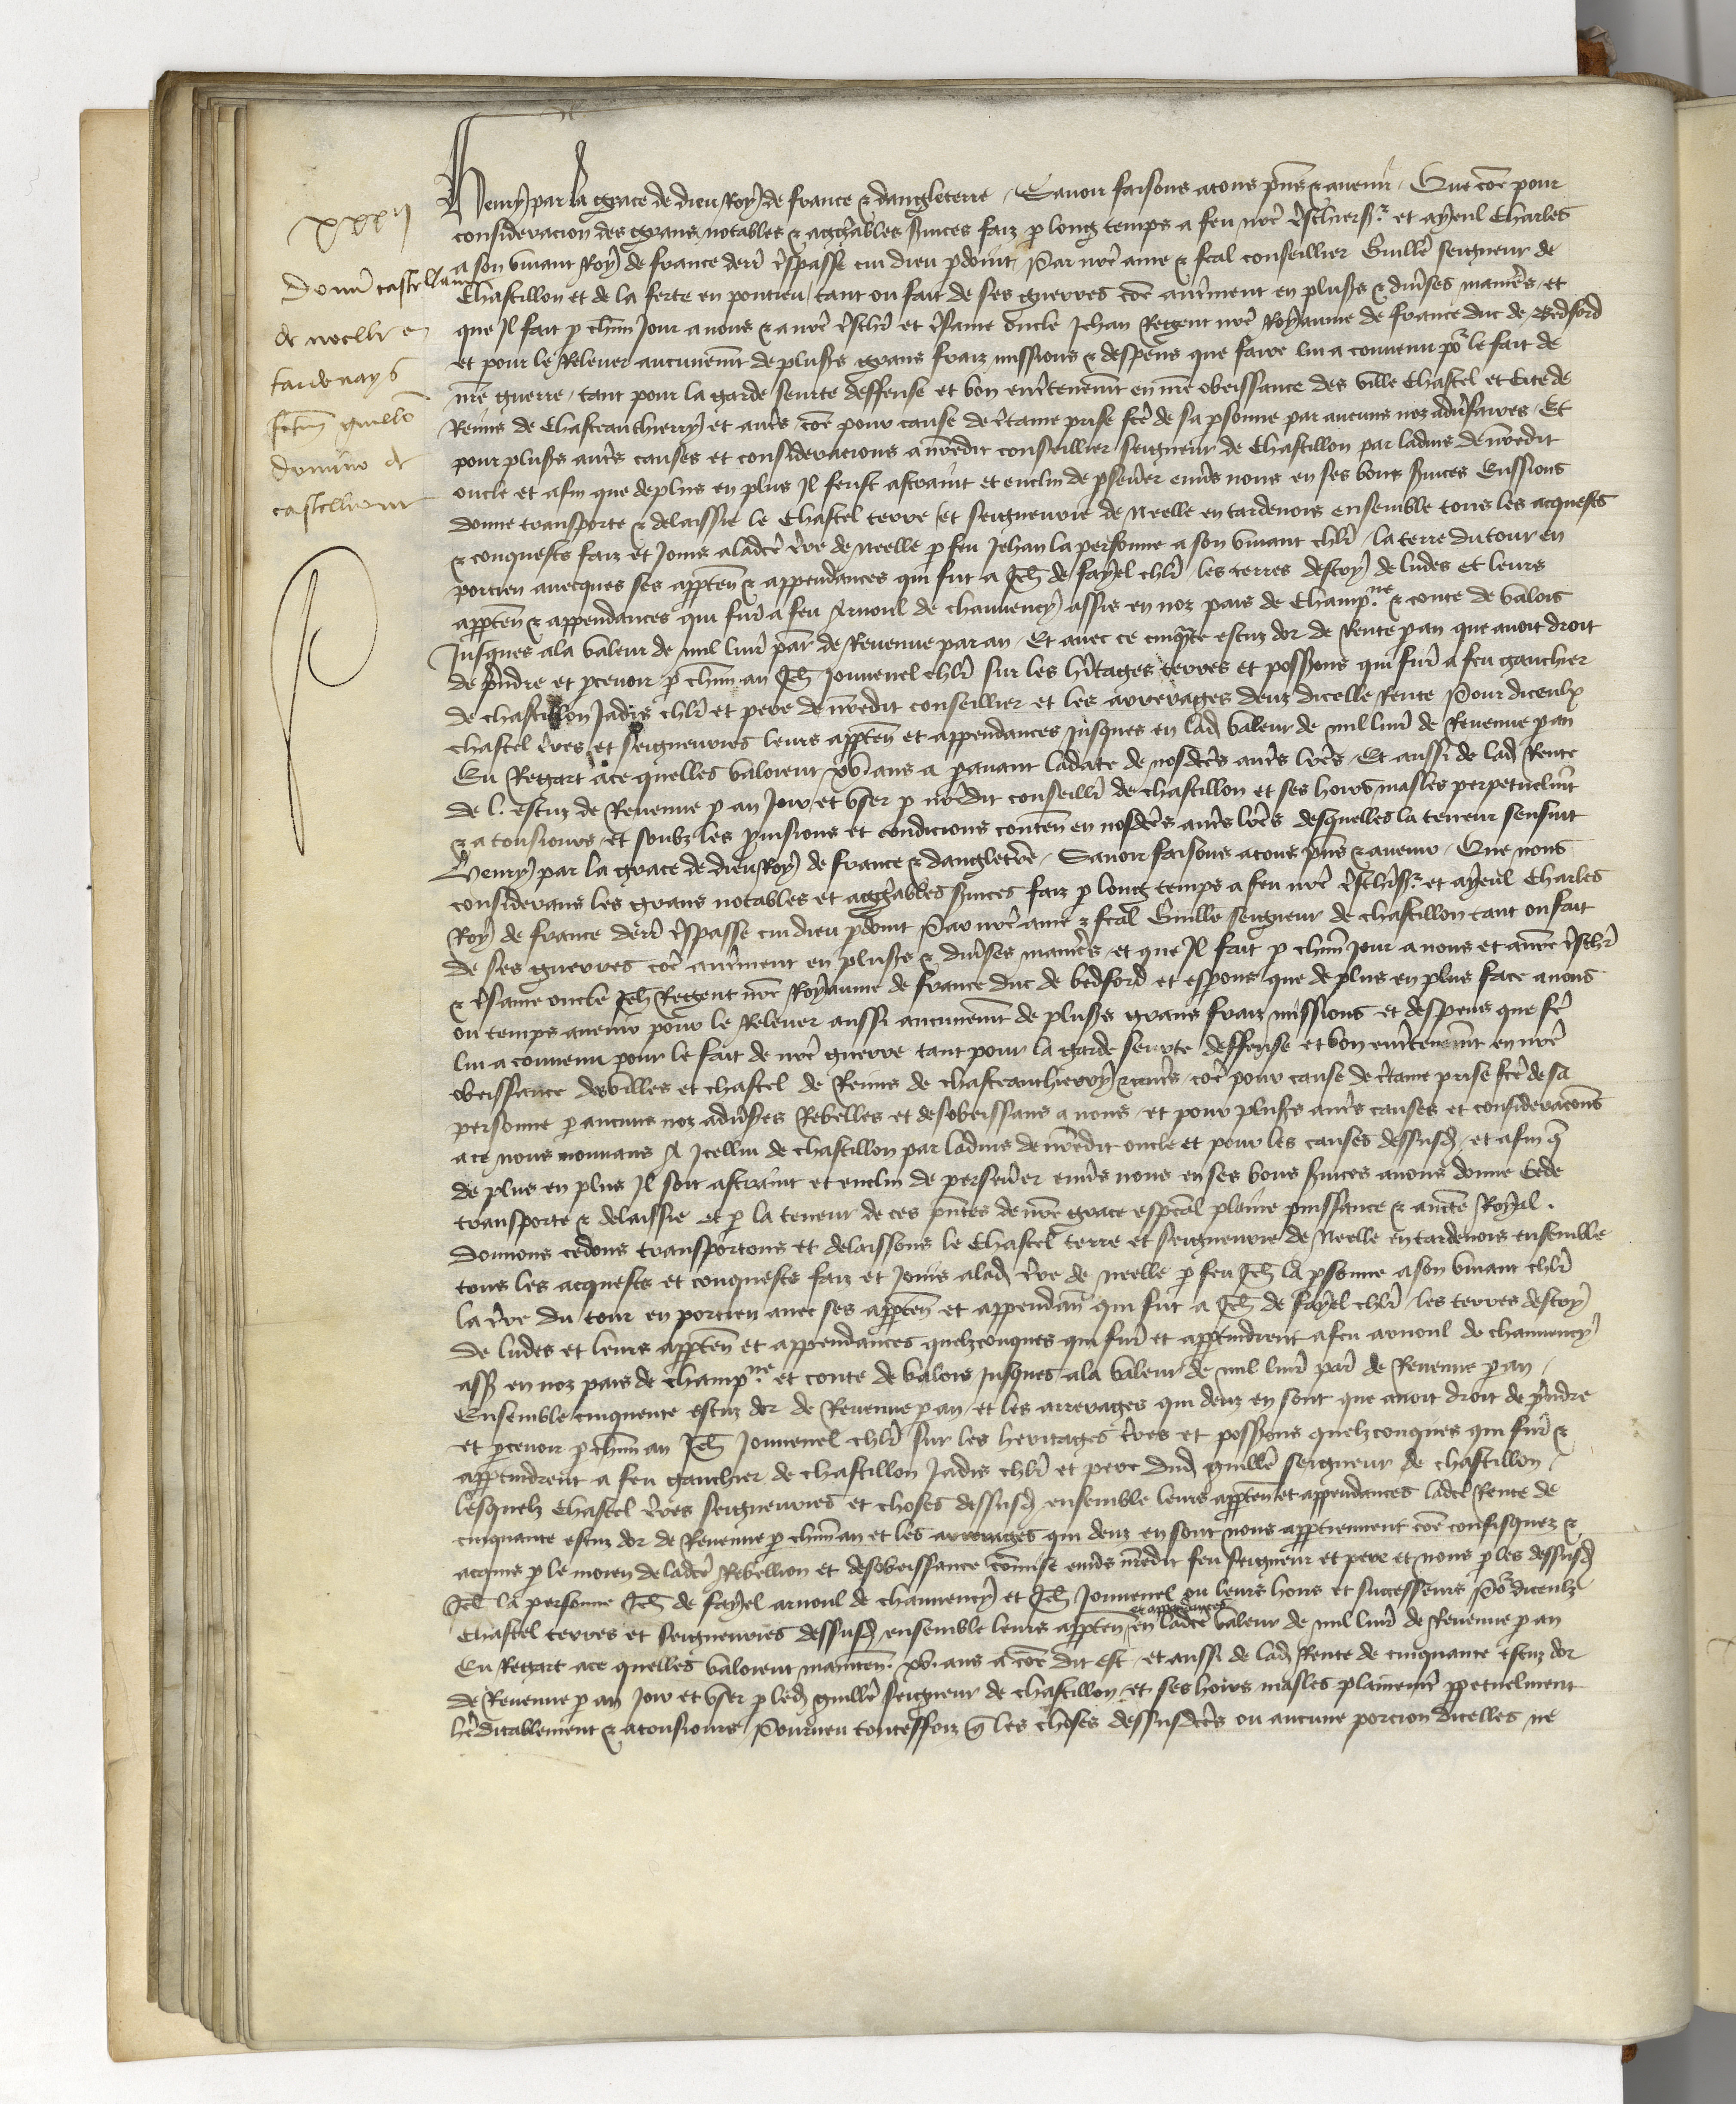 xxxij
Donum castellanie
de neelle en
tardenays
factum guillelmo
domino de
castellione
Henry par la grace de dieu Roy de france & dangleterre / Sauoir faisons a tous pñs & auenir / Que cõe pour
consideracion des grans notables & aggreables seruices faiz p long temps a feu nr̃e treschier sr et ayeul Charles
a son viuant Roy de france derr̃ trespasse cui dieu pdoint / Par nr̃e ame & feal conseillier Guillẽ seigneur de
Chastillon et de la ferte en pontieu / tant ou fait de ses guerres cõe autrement en plusrs & diuerses manieres / et
que Il fait p chũn Jour a nous & a nr̃e treschr̃ et tresame oncle Jehan Regent nr̃e Royaume de france duc de Bedford
et pour le Releuer aucunemt de plusrs grans fraiz missions & despens que faire lui a conuenu por le fait de
nr̃e guerre / tant pour la garde seurte deffense et bon entretenemt en nr̃e obeissance des ville Chastel et Cite de
Reims de Chasteauthierry et autrs / cõe pour cause de certaine prise fcẽ de sa psonne par aucuns noz aduersaires / Et
pour plusrs autrs causes et consideracions a nr̃edit conseillier seigneur de Chastillon par laduis de nr̃edit
oncle et afin que de plus en plus Il feust astraint et enclin de pseuerer enuers nous en ses bons seruices Eussions
donne transporte & delaissie le Chastel terre et seigneurie de Neelle en tardenois ensemble tous les acquests
& conquests faiz et Joins a ladcẽ tr̃re de Neelle p feu Jehan la personne a son viuant chlr̃ / la terre du tour en
portien auecques ses apptẽn & appendances qui fut a Jeh̃ de fayel chlr̃ les terres destoy de ludes et leurs
apptẽn & appendances qui furẽ a feu Arnoul de chauuency assis en noz pais de Champne & conte de Valois
Jusques a la valeur de mil liurẽ par̃ de Reuenue par an / Et auec ce cinqte escuz dor de Rente p an que auoit droit
de prendre et pceuoir p chũn an Jeh̃ Jouuenel chlr̃ sur les hr̃itages terres et possessions qui furẽ a feu gauchier
de chastillon Jadis chlr̃ et pere de nr̃edit conseillier et les arrerages deuz dicelle Rente Pour diceulx
chastel tr̃res et seigneuries leurs apptẽn et appendances jusques en lad valeur de mil liurẽ de Reuenue p an
Eu Regart a ce quelles valoient xvi ans a pauant la date de nosdcẽs autrs lr̃es / Et aussi de lad Rente
de l. escuz de Reuenue p an Joir et vser p nr̃edit conseillr̃ de chastillon et ses hoirs masles perpetuelmt
& a tousiours / et soubz les prouisions et condicions contẽn en nosdcẽs autrs lr̃es desquelles la teneur sensuit
Henry par la grace de dieu Roy de france & dangletr̃re / Sauoir faisons a tous pñs & auenir / Que nous
considerans les grans notables et aggreables seruices faiz p long temps a feu nr̃e treschr̃ sr et ayeul Charles
Roy de france derr̃ trespasse cui dieu pdoint Par nr̃e ame & feal Guillẽ seigneur de chastillon tant ou fait
de ses guerres cõe autrment en plusrs & diuerses manieres / et que Il fait p chũn Jour a nous et a nr̃e treschr̃
& tresame oncle Jeh̃ Regent nr̃e Royaume de france duc de bedford et esperons que de plus en plus face a nous
ou temps auenir pour le Releuer aussi aucunemt de plusrs grans fraiz missions et despens que fẽ
lui a conuenu pour le fait de nr̃e guerre tant pour la garde seurte deffense et bon entretenemt en nr̃e
obeissance des villes et chastel de Reims de chasteauthierry & autrs / cõe pour cause de certaine prise fcẽ de sa
personne p aucuns noz aduersrs Rebelles et desobeissans a nous / et pour plusrs autrs causes et consideracõns
a ce nous mouuans A Icellui de chastillon par laduis de nr̃edit oncle et pour les causes dessusd / et afin q̃
de plus en plus Il soit astraint et enclin de perseuerer enuers nous en ses bons seruices auons donne Cede
transporte & delaissie et p la teneur de ces pñtes de nr̃e grace espcãl plaine puissance & aucte Royal .
Donnons cedons transportons et delaissons le Chastel terre et seigneurie de Neelle en tardenois ensemble
tous les acquests et conquests faiz et Joins a lad tr̃re de neelle p feu Jeh̃ la psonne a son viuant chlr̃
la tr̃re du tour en portien auec ses apptẽn et appendan̄ qui fut a Jeh̃ de fayel chlr̃ / les terres destoy
de ludes et leurs apptẽn et appendances quelzconques qui furẽ et apptindrent a feu arnoul de chauuency
ass en noz pais de champne et conte de valois Jusques a la valeur de mil liurẽ par̃ de Reuenue p an /
Ensemble cinquante escuz dor de Reuenue p an / et les arrerages qui deuz en sont que auoit droit de prendre
et pceuoir p chũn an Jeh̃ Jouuenel chlr̃ sur les heritages tr̃res et possessions quelzconques qui furẽ &
apptindrent a feu gauchier de chastillon Jadis chlr̃ et pere dud guillẽ seigneur de chastillon /
lesquelz Chastel tr̃res seigneuries et choses dessusd ensemble leurs apptẽn et appendances ladcẽ Rente de
cinquante escuz dor de Reuenue p chũn an et les arrerages qui deuz en sont nous apptiennent cõe confisquez &
acquis p le moien de ladcẽ Rebellion et desobeissance cõmise enuers nr̃edit feu seigneur et pere et nous p les dessusd
Jeh̃ la personne Jeh̃ de fayel arnoul de chauuency et Jeh̃ Jouuenel ou leurs hoirs et successeurs Por diceulx
Chastel terres et seigneuries dessusd ensemble leurs apptẽn et appendances en ladcẽ valeur de mil liurẽ de Reuenue p an
Eu Regart a ce quelles valoient mainten̄ xvi. ans a cõe dit est / et aussi de lad Rente de cinquante escuz dor
de Reuenue p an Joir et vser p led guillẽ seigneur de chastillon et ses hoirs masles plainemt ppetuelment
hr̃editablement & a tousiours / Pourueu touteffoiz q̃ les choses dessusdcẽs ou aucune porcion dicelles ne